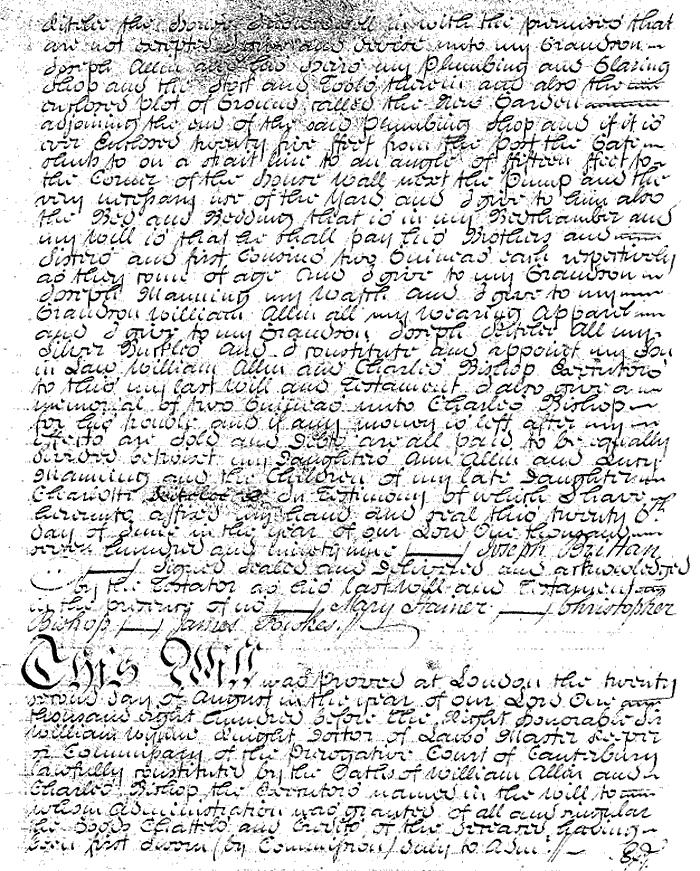 Kitcher the House I now dwell in with the premises that
are not excepted I give and devise unto my Grandson
Joseph Allin and his heirs my Plumbing and Glazing
Shop and the Stock and Tools therein and also the
enclosed plot of Ground called the New Garden
adjoining the end of the said Plumbing Shop and if it is
ever Enclosed twenty five feet from the Post the Gate
shuts to on a strait line to an angle of fifteen feet to
the Corner of the House Wall next the Pump and the
very necessary use of the Yard and I give to him also
the Bed and Bedding that is in my Bedchamber and
my Will is that he shall pay his Brothers and
Sisters and first Cousins two Guineas each respectively
as they come of age And I give to my Grandson
Joseph Manning my Watch And I give to my
Grandson William Allin all my Wearing Apparel
and I give to my Grandson Joseph Kitcher All my
Silver Buckles And I constitute and appoint my Son
in Law William Allin and Charles Bishop Executors
to this my last Will and Testament I also give a
memorial of two Guineas unto Charles Bishop
for his trouble and if any money is left after my
effects are sold and Debts are all paid to be equally
divided betwixt my Daughters Ann Allin and Lucy
Manning and the Children of my late Daughter
Charlotte In Testimony of which I have
hereunto affixed my hand and seal this twenty 6th
day of June in the year of our Lord One thousand
seven hundred and ninety nine Joseph Brittan
Signed Sealed and Delivered and acknowledged
by the Testator as his last Will and Testament
in the presence of us Mary Hamer Christopher
Bishop James Fowkes
This Will was proved at London the twenty
second day of August in the year of our Lord One
thousand eight hundred before the Right Honorable Sir
William Wynne Knight Doctor of Laws Master Keeper
or Commissary of the Prerogative Court of Canterbury
lawfully constituted by the Oaths of William Allin and
Charles Bishop the Executors named in the Will to
whom Administration was granted of all and singular
the Goods Chattels and Credits of the deceased having
been first sworn (by Commission) duly to Adm.